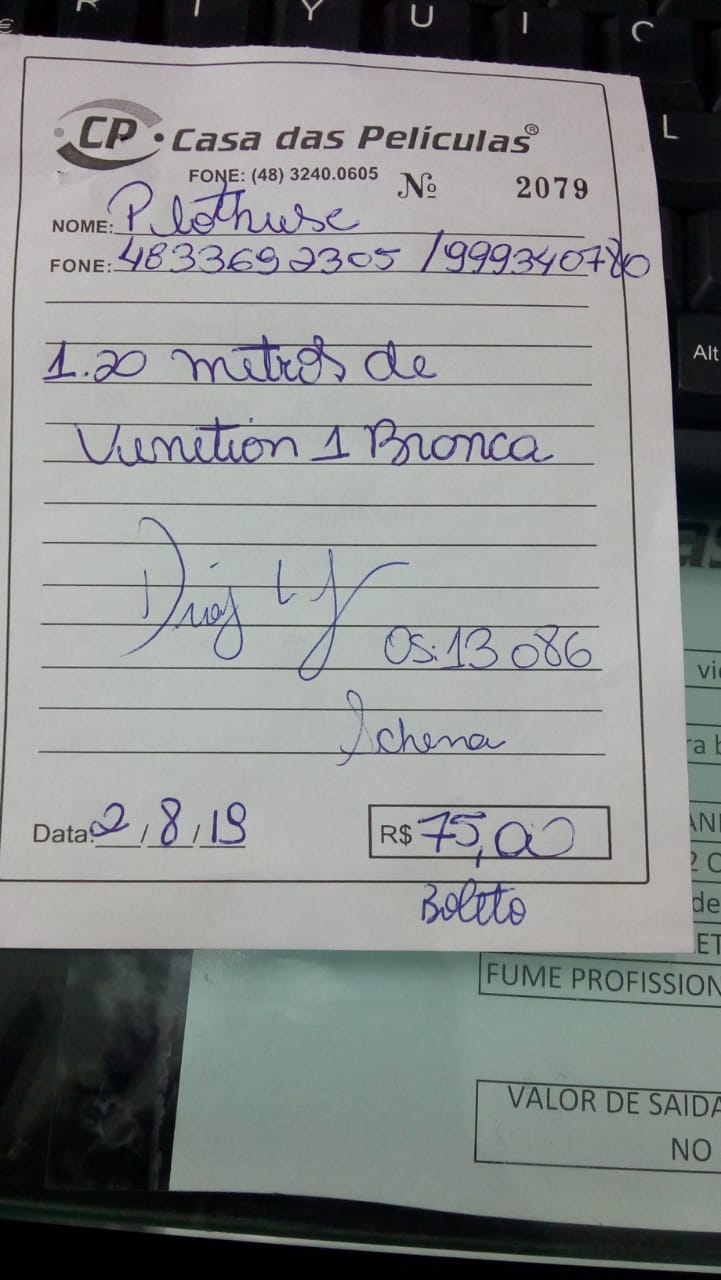 € R T Y U I O
L
Alt
CP • Casa das Películas®
FONE: (48) 3240.0605 Nº 2079
NOME: Plothuse
FONE: 4833692305 / 999340780
1.20 metros de
Venetion 1 Bronca
OS: 13 086
Schena
Data: 2 / 8 / 19 R$ 75,00
Boleto
FUME PROFISSION
VALOR DE SAIDA
NO